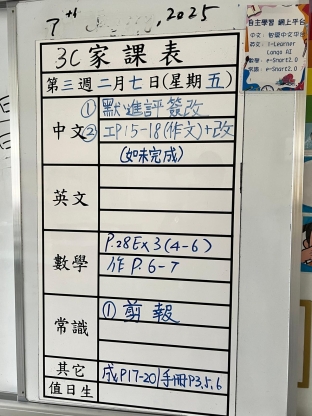 7th , 2025
3C家課表
第三週二月七日(星期五)
中文
①默進評簽改
②工P.15-18(作文)+改
(如未完成)
英文
數學
P.28Ex3(4-6)
作P.6-7
常識
①剪報
其它
成P17-20/手冊P3,5,6
值日生
自主學習 網上平台
中文:
英文: i-Learner
數學: e-Smart2.0
常識: e-Smart2.0